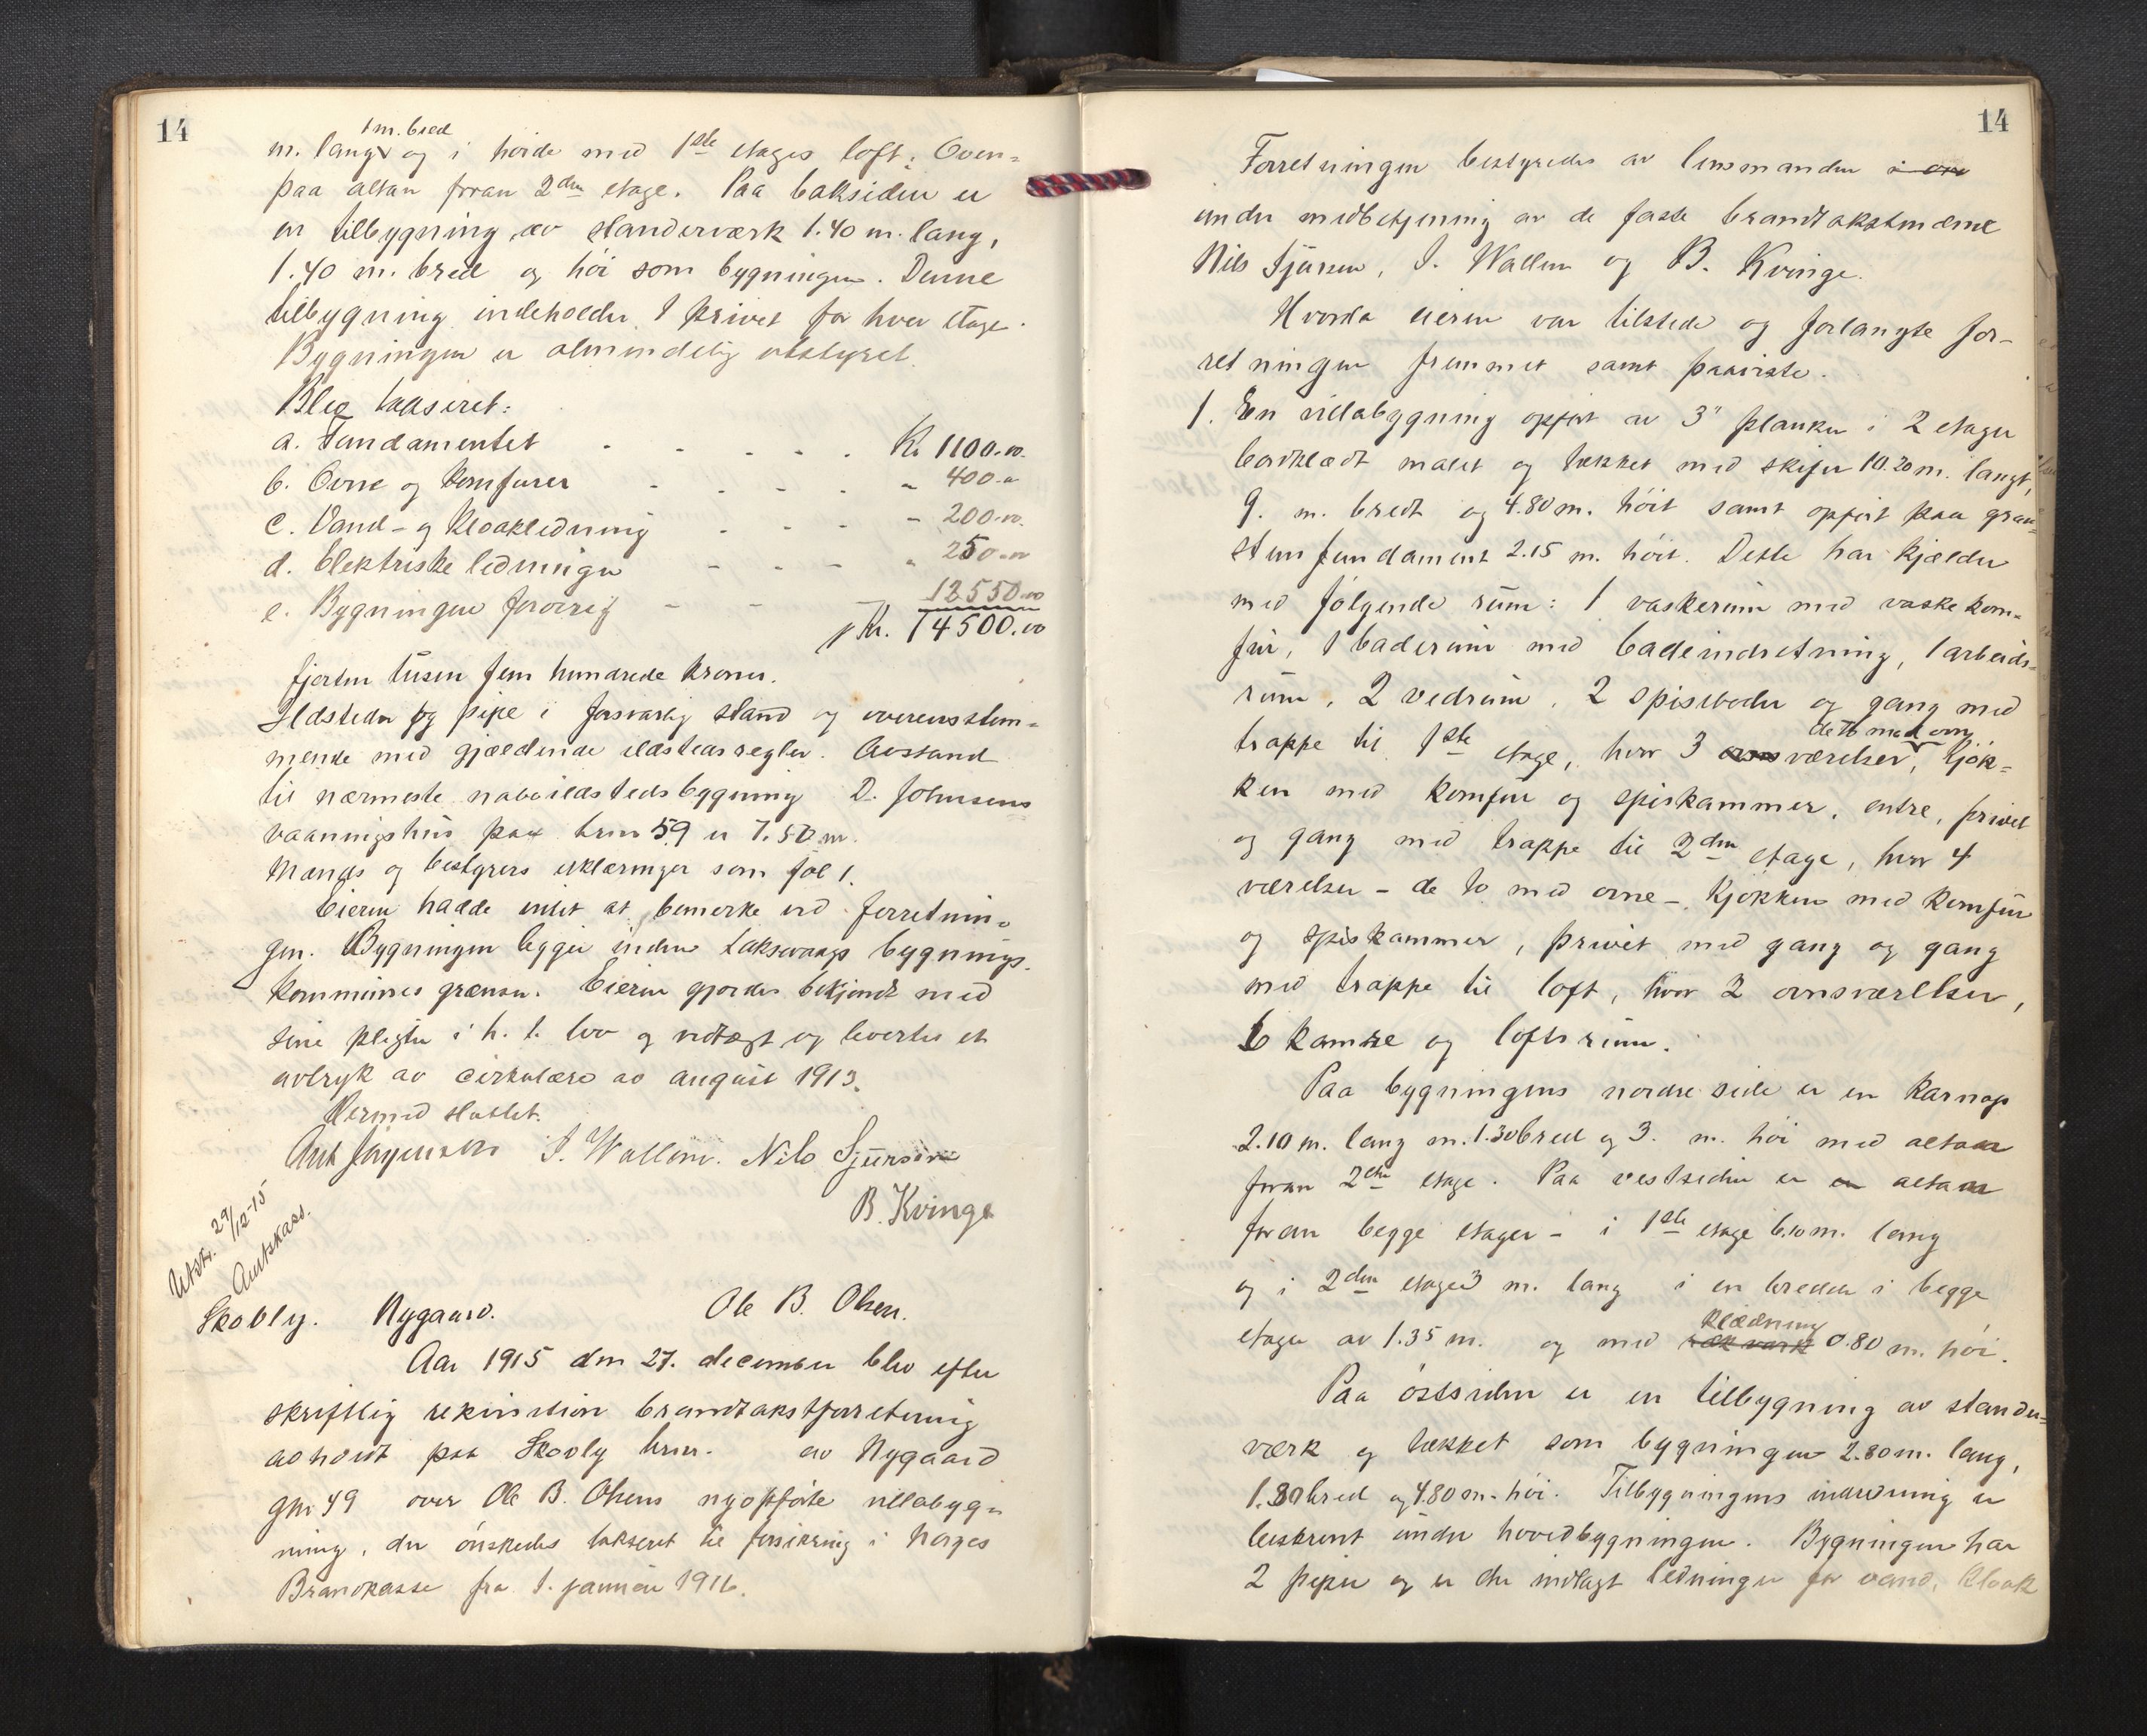 14
1 m. bred
m. lang og i høide med 1ste etages loft. Oven-
paa altan foran 2den etage. Paa baksiden er
en tilbygning av standerværk 1.40 m. lang,
1.40 m. bred og høi som bygningen. Denne
tilbygning indeholder 1 privet for hver etage.
Bygningen er almindelig utstyret.
Blev takseret:
a. Fundamentet - - - - - Kr 1100.00.
b. Ovne og komfurer - - - - " 400.-
c. Vand- og kloakledning - - - " 200.00.
d. Elektriske ledninger - - - " 250.00
e. Bygningen forøvrig - - - 12550.00
Kr. 14500.00
fjorten tusen fem hundrede kroner.
Ildsteder og pipe i forsvarlig stand og overensstem-
mende med gjældende ildstedsregler. Avstand
til nærmeste naboildstedsbygning D. Johnsens
vaaningshus paa brno 59 er 7.50 m.
Mænds og bestyrers erklæringer som fol 1.
Eieren hadde intet at bemerke ved forretnin-
gen. Bygningen ligger inden Laksevaags bygnings-
kommunes grænser. Eieren gjordes bekjendt med
sine pligter i h. t. lov og vedtægt og levertes et
avtryk av cirkulære av august 1913.
Hermed sluttet.
J. Wallem. Nils Sjursen
B. Kvinge
Utstr. 29/12-15
Amtskass.
Skobly. Nygaard. Ole B. Olsen.
Aar 1915 den 27. december blev efter
skriftlig rekvisition brandtakstforretning
avholdt paa Skovly brnr. av Nygaard
gnr 49 over Ole B. Olsens nyopførte villabyg-
ning, der ønskedes takseret til forsikring i Norges
Brandkasse fra 1. januar 1916.
14
Forretningen bestyredes av lensmanden i en
under medbetjening av de faste brandtakstmænd
Nils Sjursen, J. Wallem og B. Kvinge.
Hvorda eieren var tilstede og forlangte for-
retningen fremmet samt paaviste.
1. En villabygning opført av 3" planker i 2 etager
bordklædt malet og tækket med skifer 10.20 m. langt,
9. m. bredt og 4.80 m. høit samt opført paa graa-
stensfundament 2.15 m. høit. Dette har kjælder
med følgende rum: 1 vaskerum med vaskekom-
fur, 1 baderum med badeindretning, 1 arbeids-
rum, 2 vedrum, 2 spiseboder og gang med
de to med ovn
trappe til 1ste etage, hvor 3 ovnsværelser, kjøk-
ken med komfur og spiskammer, entre, privet
og gang med trappe til 2den etage, hvor 4
værelser - de to med ovne - kjøkken med komfur
og spiskammer, privet med gang og gang
med trappe til loft, hvor 2 ovnsværelser,
6 kamre og loftsrum.
Paa bygningens nordre side er en karnap
2.10 m. lang m. 1.30 bred og 3. m. høi med altan
foran 2den etage. Paa vestsiden er en altan
foran begge etager - i 1ste etage 6.10 m. lang
og i 2den etage 3 m. lang i en bredde i begge
klædning
etager av 1.35 m. og med rækværk 0.80 m. høi.
Paa østsiden er en tilbygning av stander-
værk og tækket som bygningen 2.80 m. lang,
1.80 bred og 4.80 m. høi. Tilbygningens indredning er
beskrevet under hovedbygningen. Bygningen har
2 piper og er der indlagt ledninger for vand, kloak